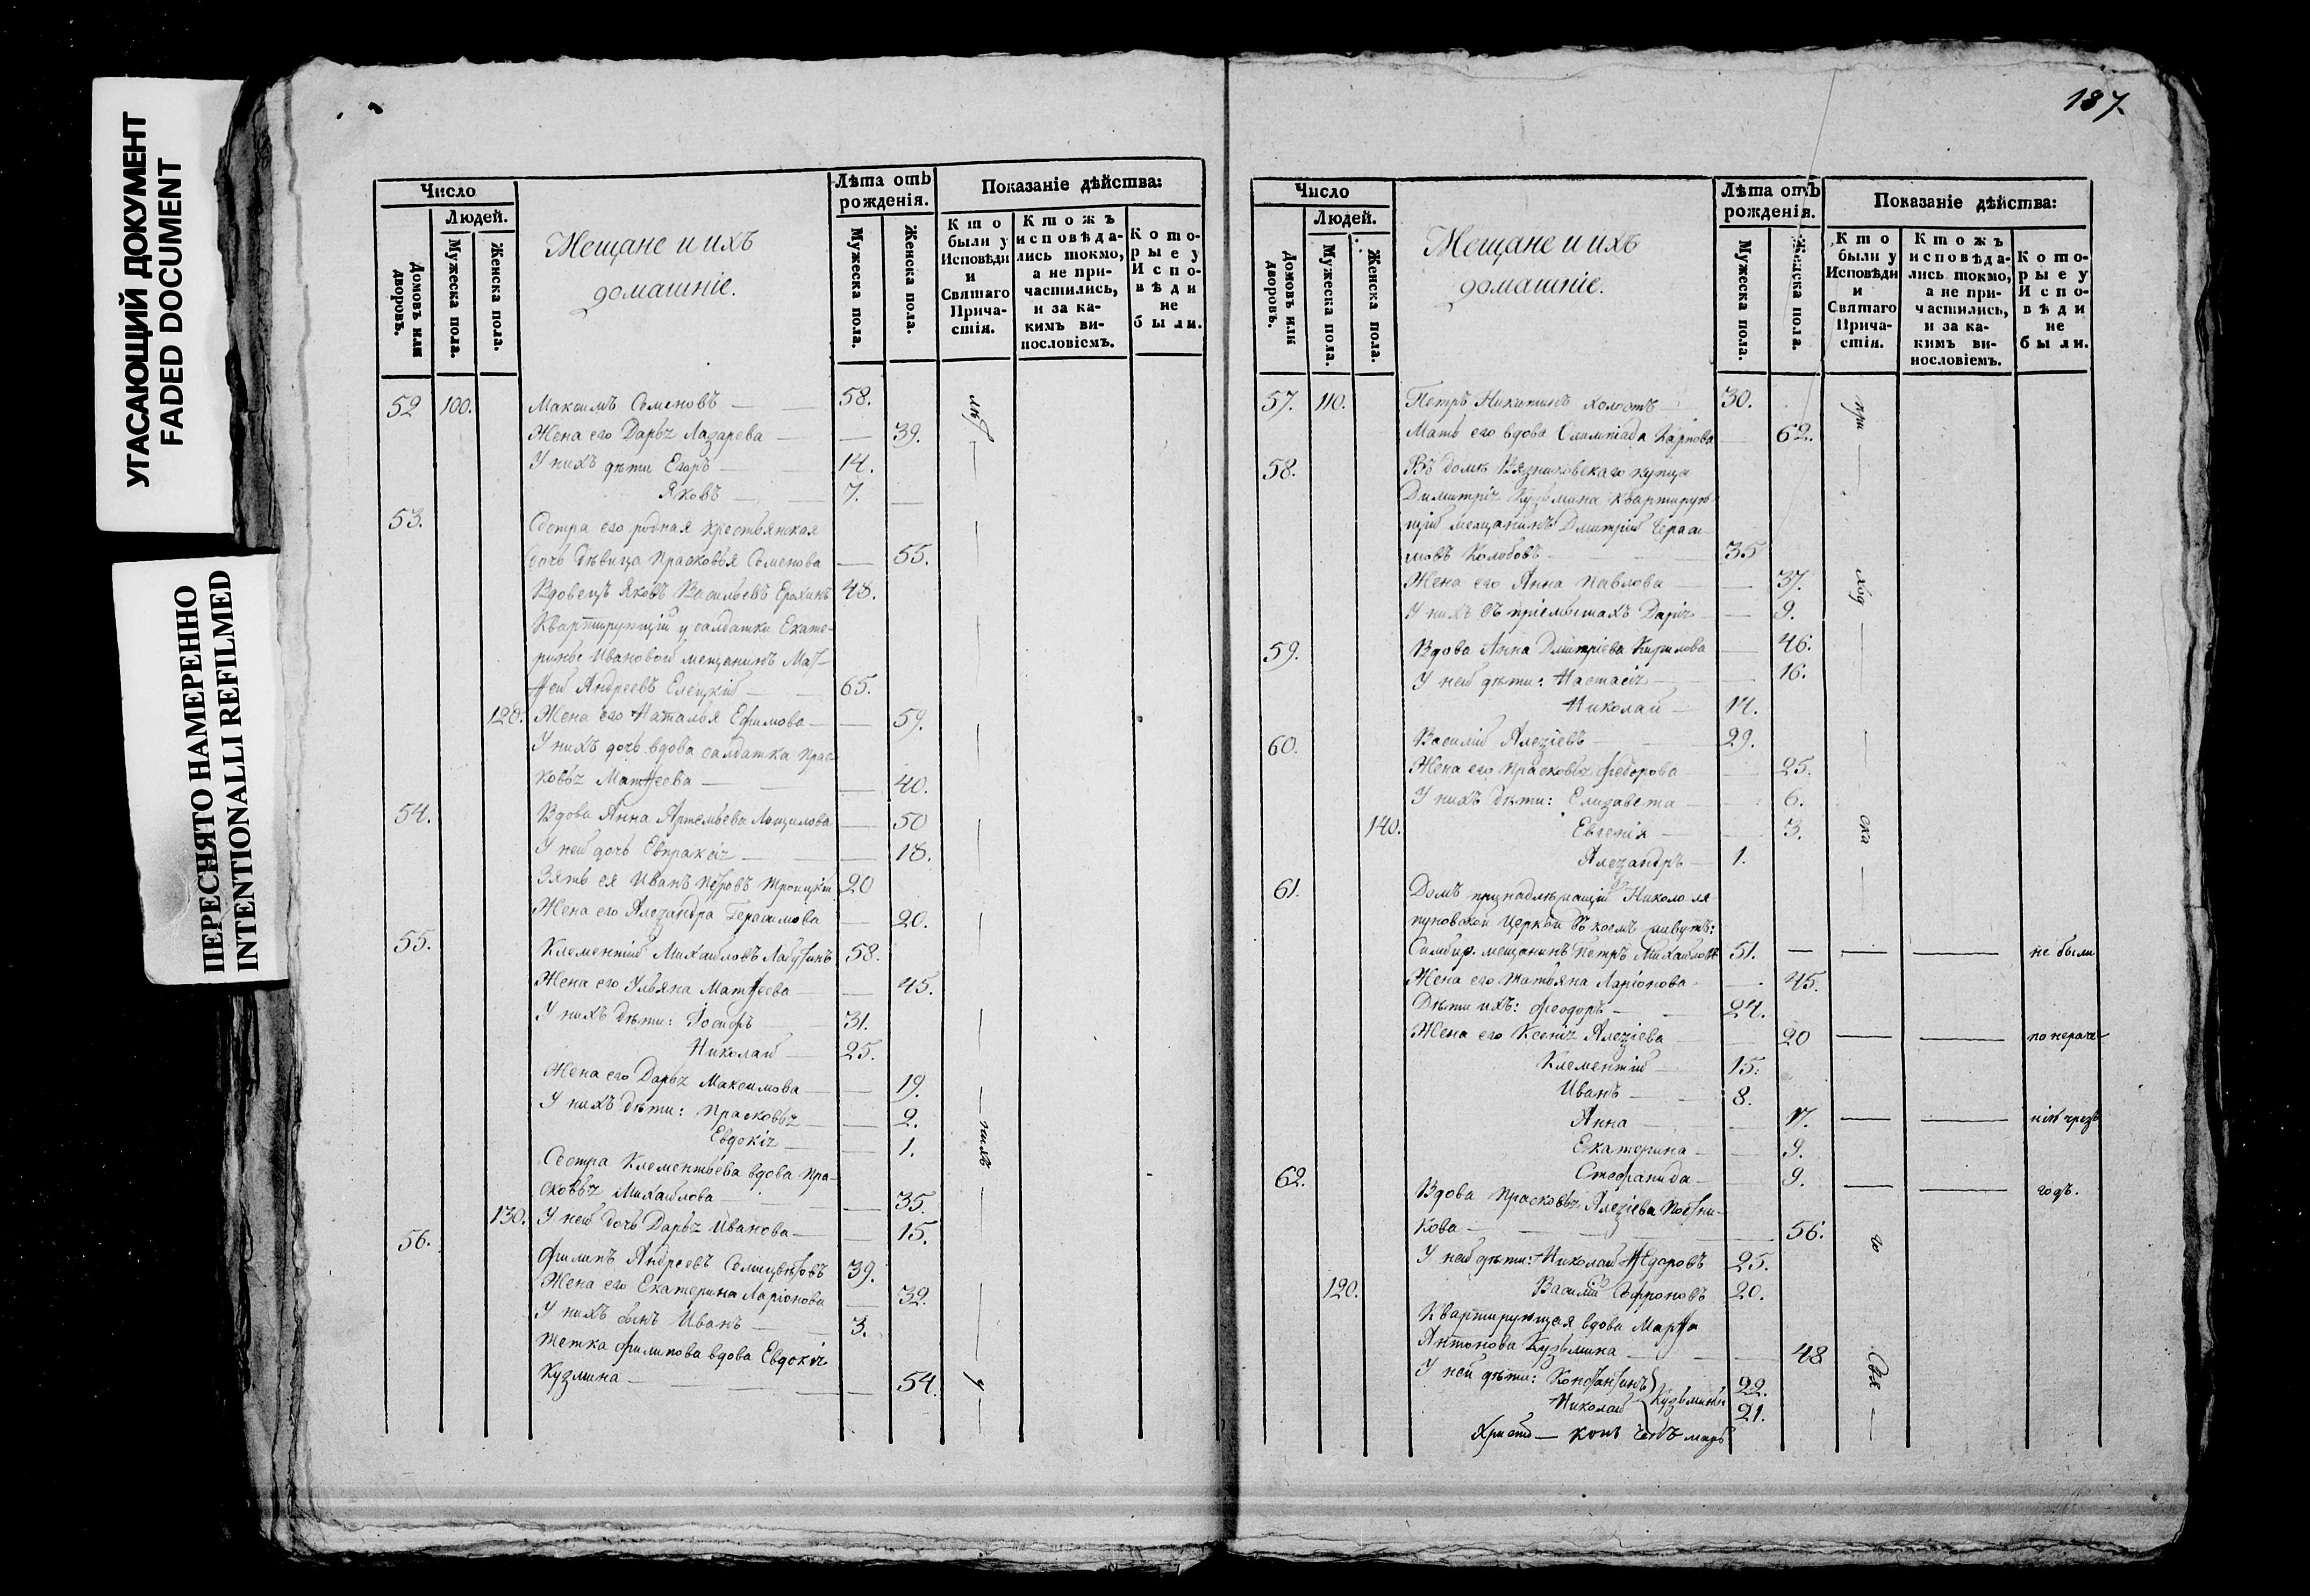 УГАСАЮЩИЙ ДОКУМЕНТ
FADED DOCUMENT
ПЕРЕСНЯТО НАМЕРЕННО
INTENTIONALLI REFILMED
Число
Людей.
Домовъ или дворовъ.
Мужеска пола.
Женска пола.
Мещане и ихъ
домашніе.
Лѣта отъ
рожденія.
Мужеска пола.
Женска пола.
Показаніе дѣйства:
Кто
были у
Исповѣди
и
Святаго
Прича-
стія.
Ктожъ
исповѣда-
лись токмо,
а не при-
частились,
и за ка-
кимъ ви-
нословіемъ.
Кото-
рые у
Испо-
вѣди
не
были.
52 100. Максимъ Сѣменовъ — 58.
Жена его Дарья Лазарева — 39.
У нихъ дѣти Егоръ — 14.
Яковъ — 7.
53. Сестра его родная крестьянская
дочь дѣвица Прасковья Сѣменова — 55.
Вдовецъ Яковъ Васильевъ Ерохинъ 48.
Квартирующій у салдатки Екате-
рины Ивановой мещанинъ Мат-
ѳей Андреевъ Елецкій — 65.
120. Жена его Наталья Ефимова — 59.
У нихъ дочь вдова салдатка Прас-
ковья Матѳеева — 40.
54. Вдова Анна Артемьева — 50
У ней дочь Евпраксія — 18.
Зять ея Иванъ Петровъ Троицкій 20
Жена его Александра Герасимова — 20.
55. Клементій Михайловъ 58.
Жена его Ульяна Матѳеева — 45.
У нихъ дѣти: Іосифъ — 31.
Николай — 25.
Жена его Дарья Максимова — 19.
У нихъ дѣти: Прасковья — 2.
Евдокія — 1.
Сестра Клементьева вдова Пра-
сковья Михайлова — 35.
130. У ней дочь Дарья Иванова — 15.
56. Филипъ Андреевъ 39.
Жена его Екатерина Ларіонова — 32.
У нихъ сынъ Иванъ — 3.
Тетка Филипова вдова Евдокія
Кузмина — 54.
187.
Число
Людей.
Домовъ или дворовъ.
Мужеска пола.
Женска пола.
Мещане и ихъ
домашніе.
Лѣта отъ
рожденія.
Мужеска пола.
Женска пола.
Показаніе дѣйства:
Кто
были у
Исповѣди
и
Святаго
Прича-
стія.
Ктожъ
исповѣда-
лись токмо,
а не при-
частились,
и за ка-
кимъ ви-
нословіемъ.
Кото-
рые у
Испо-
вѣди
не
были.
57. 110. Петръ Никитинъ холостъ 30.
Мать его вдова Олимпіада Карпова 62.
58. Въ домѣ Вязниковскаго купца
Димитрія Кузьмина квартирую-
щій мещанинъ Дмитрій Гераси-
мовъ Колобовъ — 35
Жена его Анна Павлова — 37.
У нихъ въ пріемышахъ Дарія — 9.
59. Вдова Анна Дмитріева Кирилова — 46.
У ней дѣти: Настасія — 16.
Николай — 14.
60. Василій Алеѯіевъ — 29.
Жена его Прасковья Федорова — 25.
У нихъ дѣти: Елизавета — 6.
140. Евгенія — 3.
Алеѯандръ — 1.
61. Домъ принадлежащій Николо ля
пуновской Церкви въ коемъ живутъ:
Симбир. мещанинъ Петръ Михайловъ 51. — — — не были
Жена его Татьяна Ларіонова — 45.
Дѣти ихъ: Феодоръ — 24.
Жена его Ксенія Алеѯіева — 20 — — по нераде-
Клементій — 15.
Иванъ — 8.
Анна — 17. — — нію чрезъ
Екатерина — 9.
Стефанида — 9. — — годъ.
62. Вдова Прасковья Алеѯіева
кова — 56.
У ней дѣти: Николай Ѳедоровъ 25.
120. Василій Софроновъ 20.
Квартирующая вдова Марѳа
Антонова Кузьмина — 48
У ней дѣти: Константинъ } Кузьмины 22.
Николай 21.